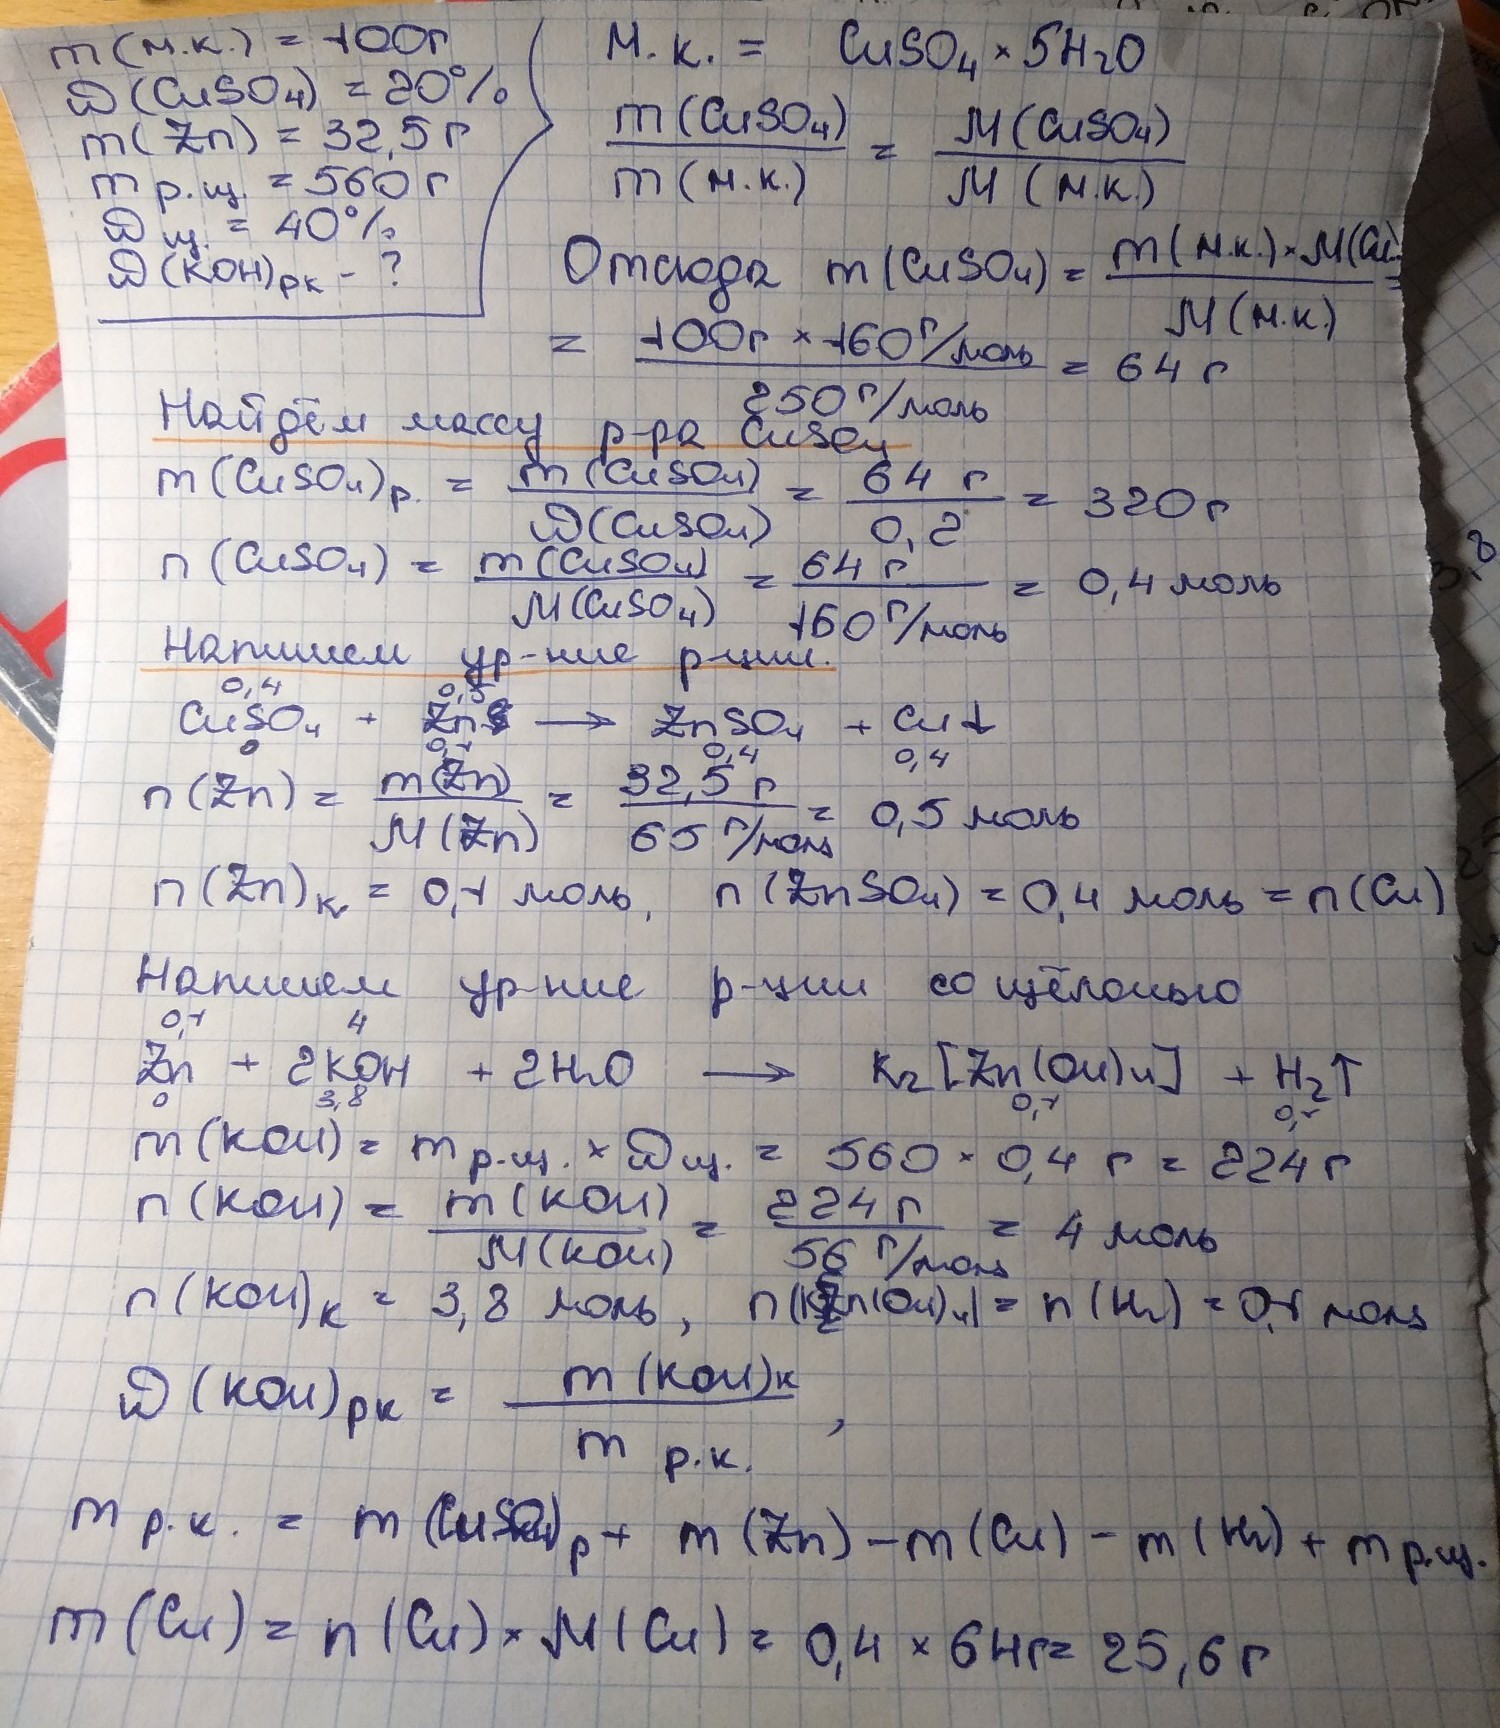 m(м.к.) = 100г
ω(CuSO4) = 20%
m(Zn) = 32,5 г
m р.щ. = 560 г
ω щ. = 40%
ω(KOH)рк - ?
М.к. = CuSO4 × 5H2O
m(CuSO4) / m(м.к.) = M(CuSO4) / M(м.к.)
Отсюда m(CuSO4) = m(м.к.) × M(Cu / M(м.к.) =
= 100г × 160 г/моль / 250 г/моль = 64 г
Найдём массу р-ра CuSO4
m(CuSO4)р. = m(CuSO4) / ω(CuSO4) = 64 г / 0,2 = 320 г
n(CuSO4) = m(CuSO4) / M(CuSO4) = 64 г / 160 г/моль = 0,4 моль
Напишем ур-ние р-ции.
0,4 0,5
CuSO4 + Zn → ZnSO4 + Cu↓
0 0,1 0,4 0,4
n(Zn) = m(Zn) / M(Zn) = 32,5 г / 65 г/моль = 0,5 моль
n(Zn)к = 0,1 моль, n(ZnSO4) = 0,4 моль = n(Cu)
Напишем ур-ние р-ции со щёлочью
0,1 4
Zn + 2KOH + 2H2O → K2[Zn(OH)4] + H2↑
0 3,8 0,1 0,1
m(KOH) = m р.щ. × ω щ. = 560 × 0,4 г = 224 г
n(KOH) = m(KOH) / M(KOH) = 224 г / 56 г/моль = 4 моль
n(KOH)к = 3,8 моль, n(K2Zn(OH)4) = n(H2) = 0,1 моль
ω(KOH)рк = m(KOH)к / m р.к. ,
m р.к. = m(CuSO4)р + m(Zn) - m(Cu) - m(H2) + m р.щ.
m(Cu) = n(Cu) × M(Cu) = 0,4 × 64г = 25,6 г